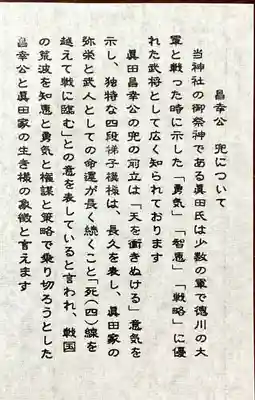 昌幸公　兜について
当神社の御祭神である眞田氏は少数の軍で徳川の大
軍と戦った時に示した「勇気」「智恵」「戦略」に優
れた武将として広く知られております
眞田昌幸公の兜の前立は「天を衝きぬける」意気を
示し、独特な四段梯子模様は、長久を表し、眞田家の
弥栄と武人としての命運が長く続くこと「死(四)線を
越えて戦に臨む」との意を表していると言われ、戦国
の荒波を知恵と勇気と権謀と策略で乗り切ろうとした
昌幸公と眞田家の生き様の象徴と言えます